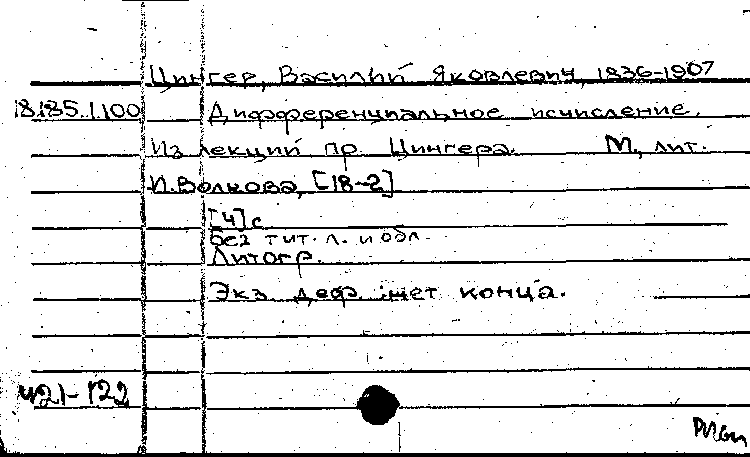 Цингер, Василий Яковлевич, 1836-1907
18.185.1.100 Дифференциальное исчисление.
Из лекций пр. Цингера. М, лит.
И. Волкова, [18-2]
[4] с
без тит. л. и обл.
Литогр.
Экз. деф. нет конца.
421-122